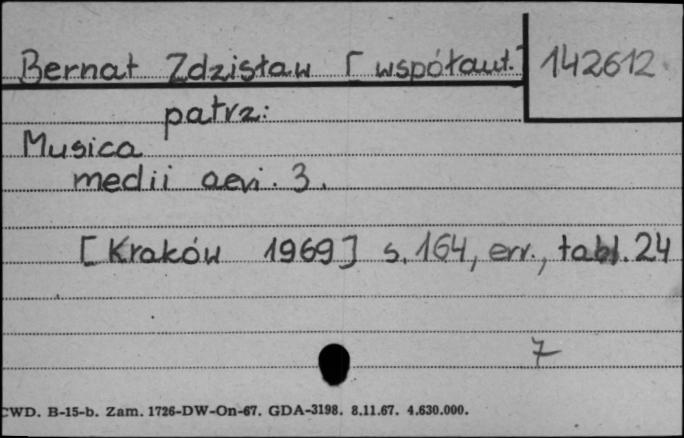 Bernat Zdzisław [współaut.] 142612
patrz:
Musica
medii aevi. 3.
[Kraków 1969] s. 164, err., tabl. 24
7
CWD. B-15-b. Zam. 1726-DW-On-67. GDA-3198. 8.11.67. 4.630.000.